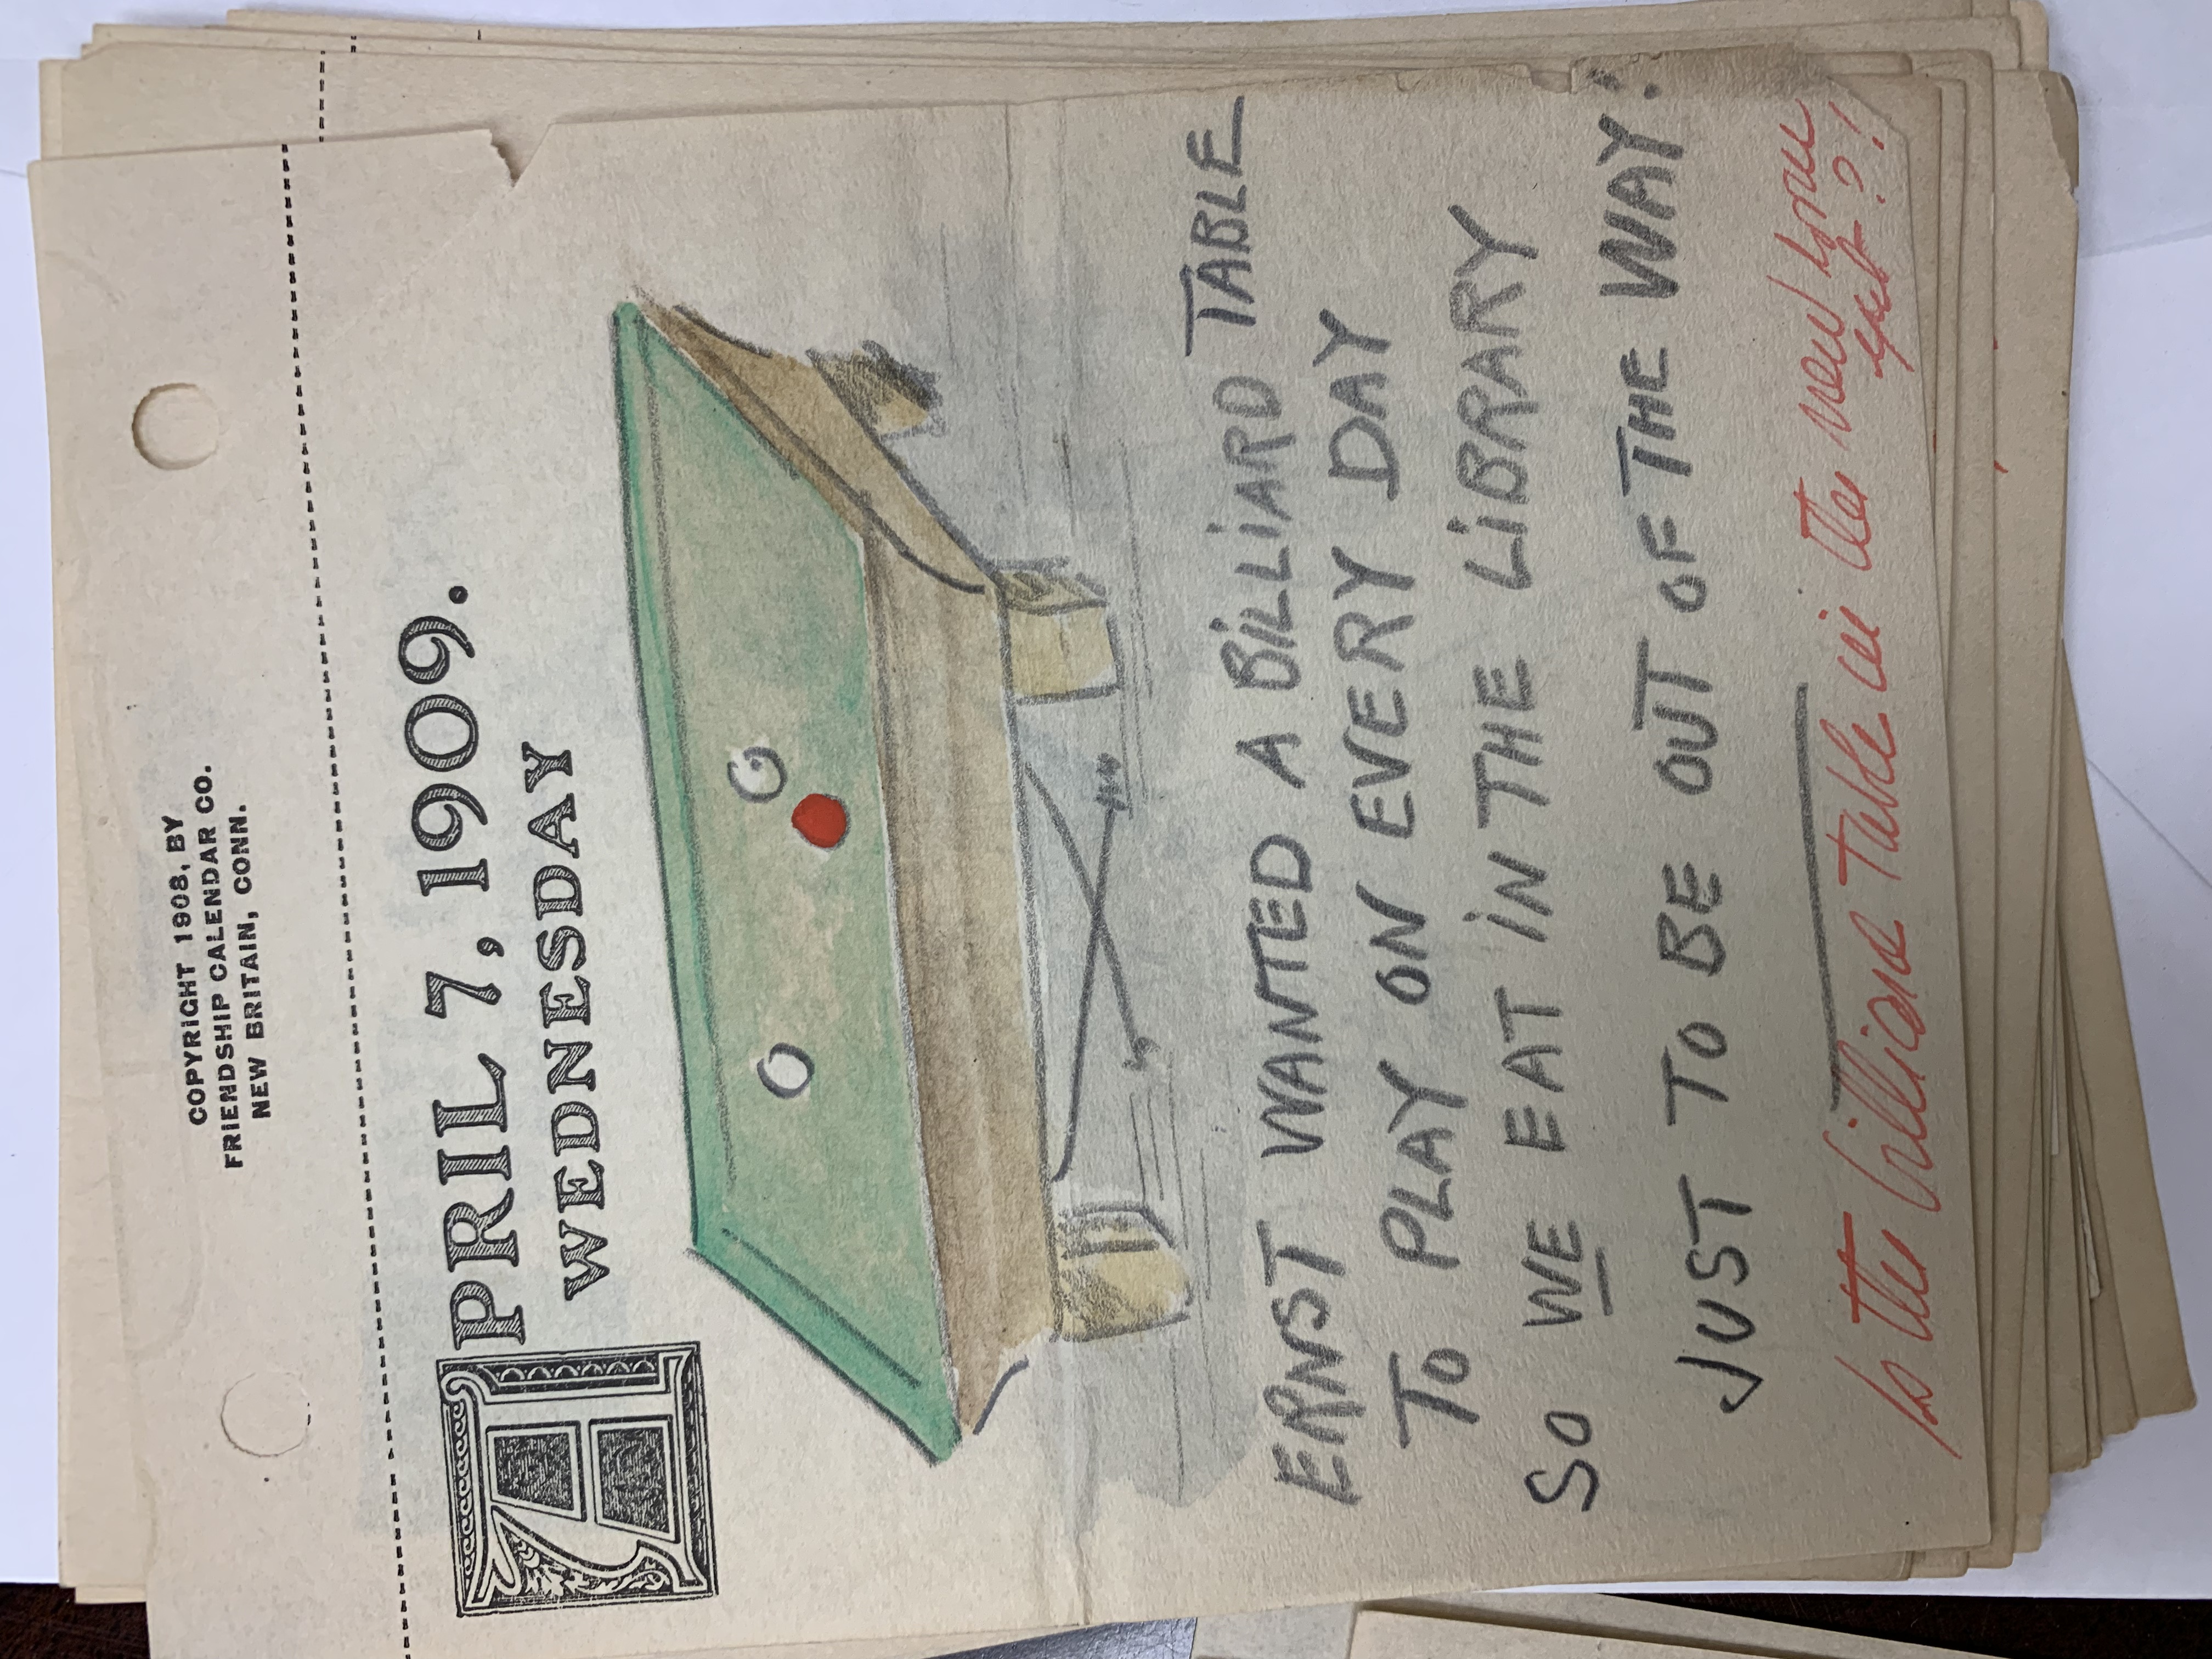 COPYRIGHT 1908, BY
FRIENDSHIP CALENDAR CO.
NEW BRITAIN, CONN.
APRIL 7, 1909.
WEDNESDAY
ERNST WANTED A BILLIARD TABLE
TO PLAY ON EVERY DAY
SO WE EAT IN THE LIBRARY
JUST TO BE OUT OF THE WAY!
Is the billiard table in the new
?!